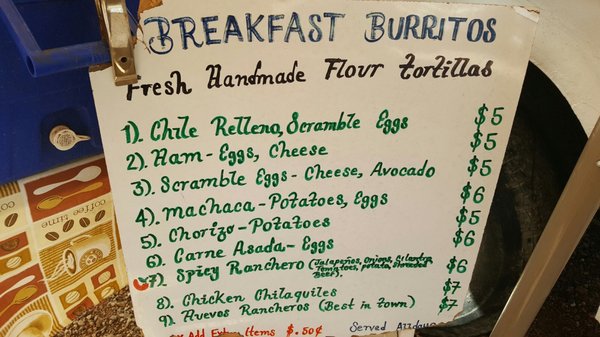 BREAKFAST BURRITOS
Fresh Handmade Flour tortillas
1). Chile Relleno, Scramble Eggs $5
2). Ham - Eggs, Cheese $5
3). Scramble Eggs - Cheese, Avocado $5
4). Machaca - Potatoes, Eggs $6
5). Chorizo - Potatoes $5
6). Carne Asada - Eggs $6
7). Spicy Ranchero (Jalapeños, Onions, Cilantro, Tomatoes, potato, shredded Beef) $6
8). Chicken Chilaquiles $7
9). Huevos Rancheros (Best in town) $7
Add Extra Items $.50¢
Served All day
coffee time
coffee